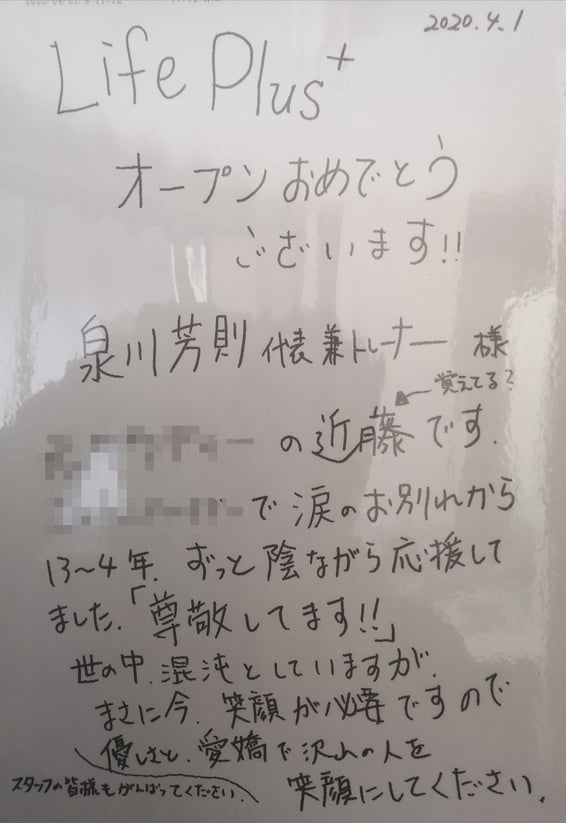 2020.4.1
Life Plus+
オープンおめでとう
ございます!!
泉川芳則 代表兼トレーナー 様
覚えてる?
の近藤です.
で涙のお別れから
13〜4年. ずっと陰ながら応援して
ました.「尊敬してます!!」
世の中.混沌としていますが.
まさに今.笑顔が必要ですので
優しさと.愛嬌で沢山の人を
笑顔にしてください.
スタッフの皆様もがんばってください.